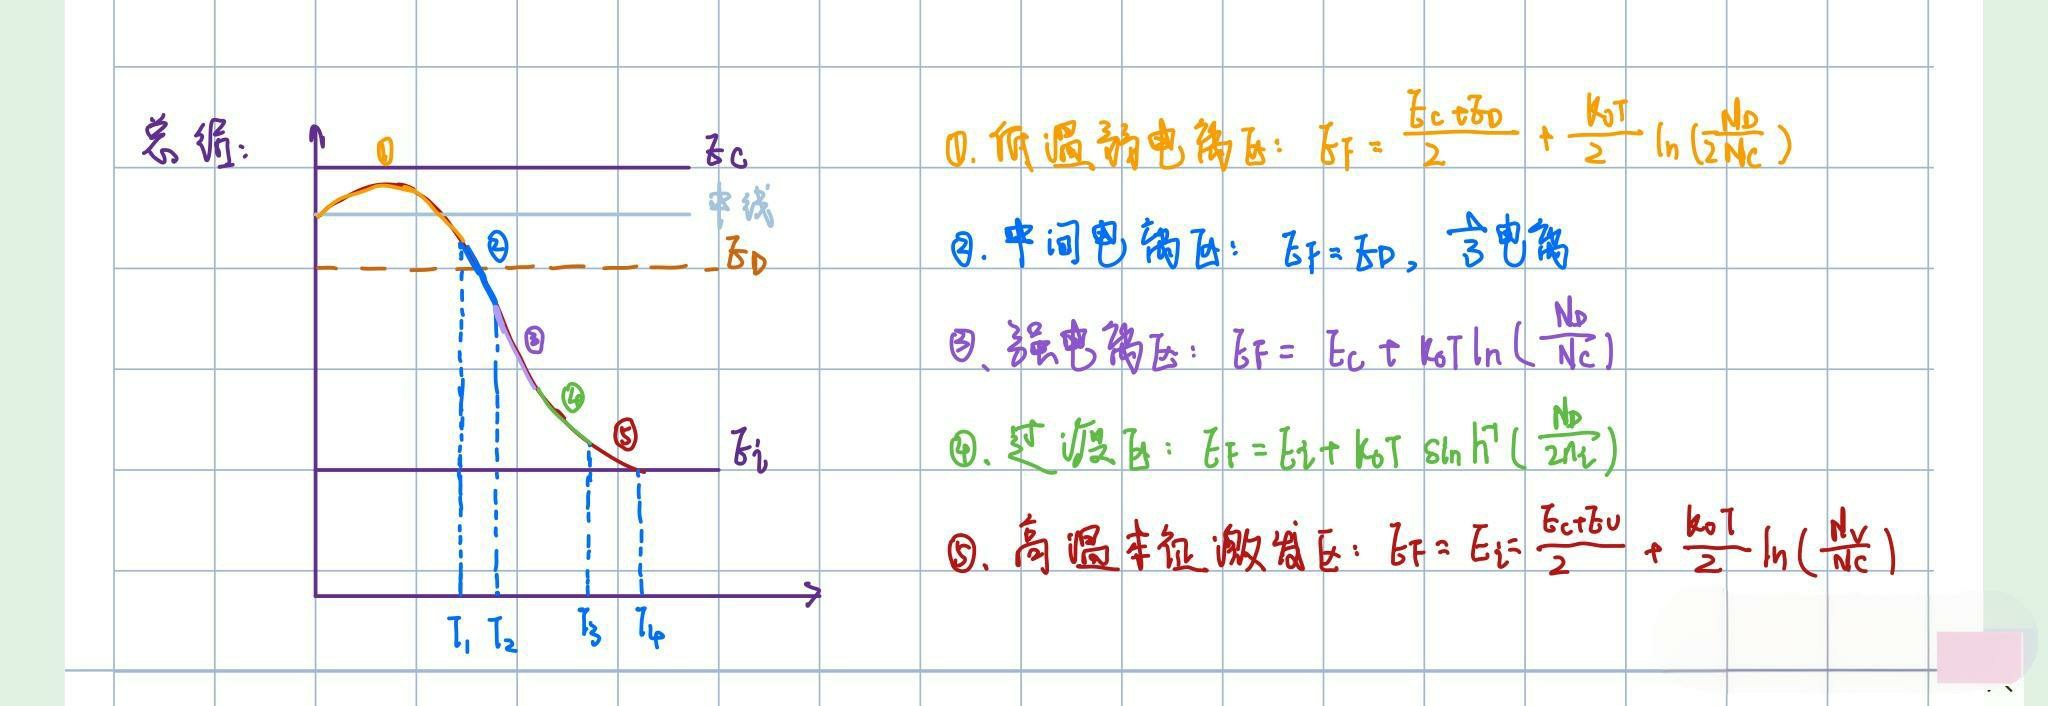 总结:
①
E_C
中线
②
E_D
③
④
⑤
E_i
T_1 T_2 T_3 T_4
①. 低温弱电离区: E_F = \frac{E_C+E_D}{2} + \frac{k_0T}{2} ln(\frac{N_D}{2N_C})
②. 中间电离区: E_F=E_D, \frac{1}{3}电离
③、强电离区: E_F = E_C + k_0T ln(\frac{N_D}{N_C})
④、过渡区: E_F = E_i + k_0T sinh^{-1}(\frac{N_D}{2n_i})
⑤、高温本征激发区: E_F = E_i = \frac{E_C+E_V}{2} + \frac{k_0T}{2} ln(\frac{N_V}{N_C})